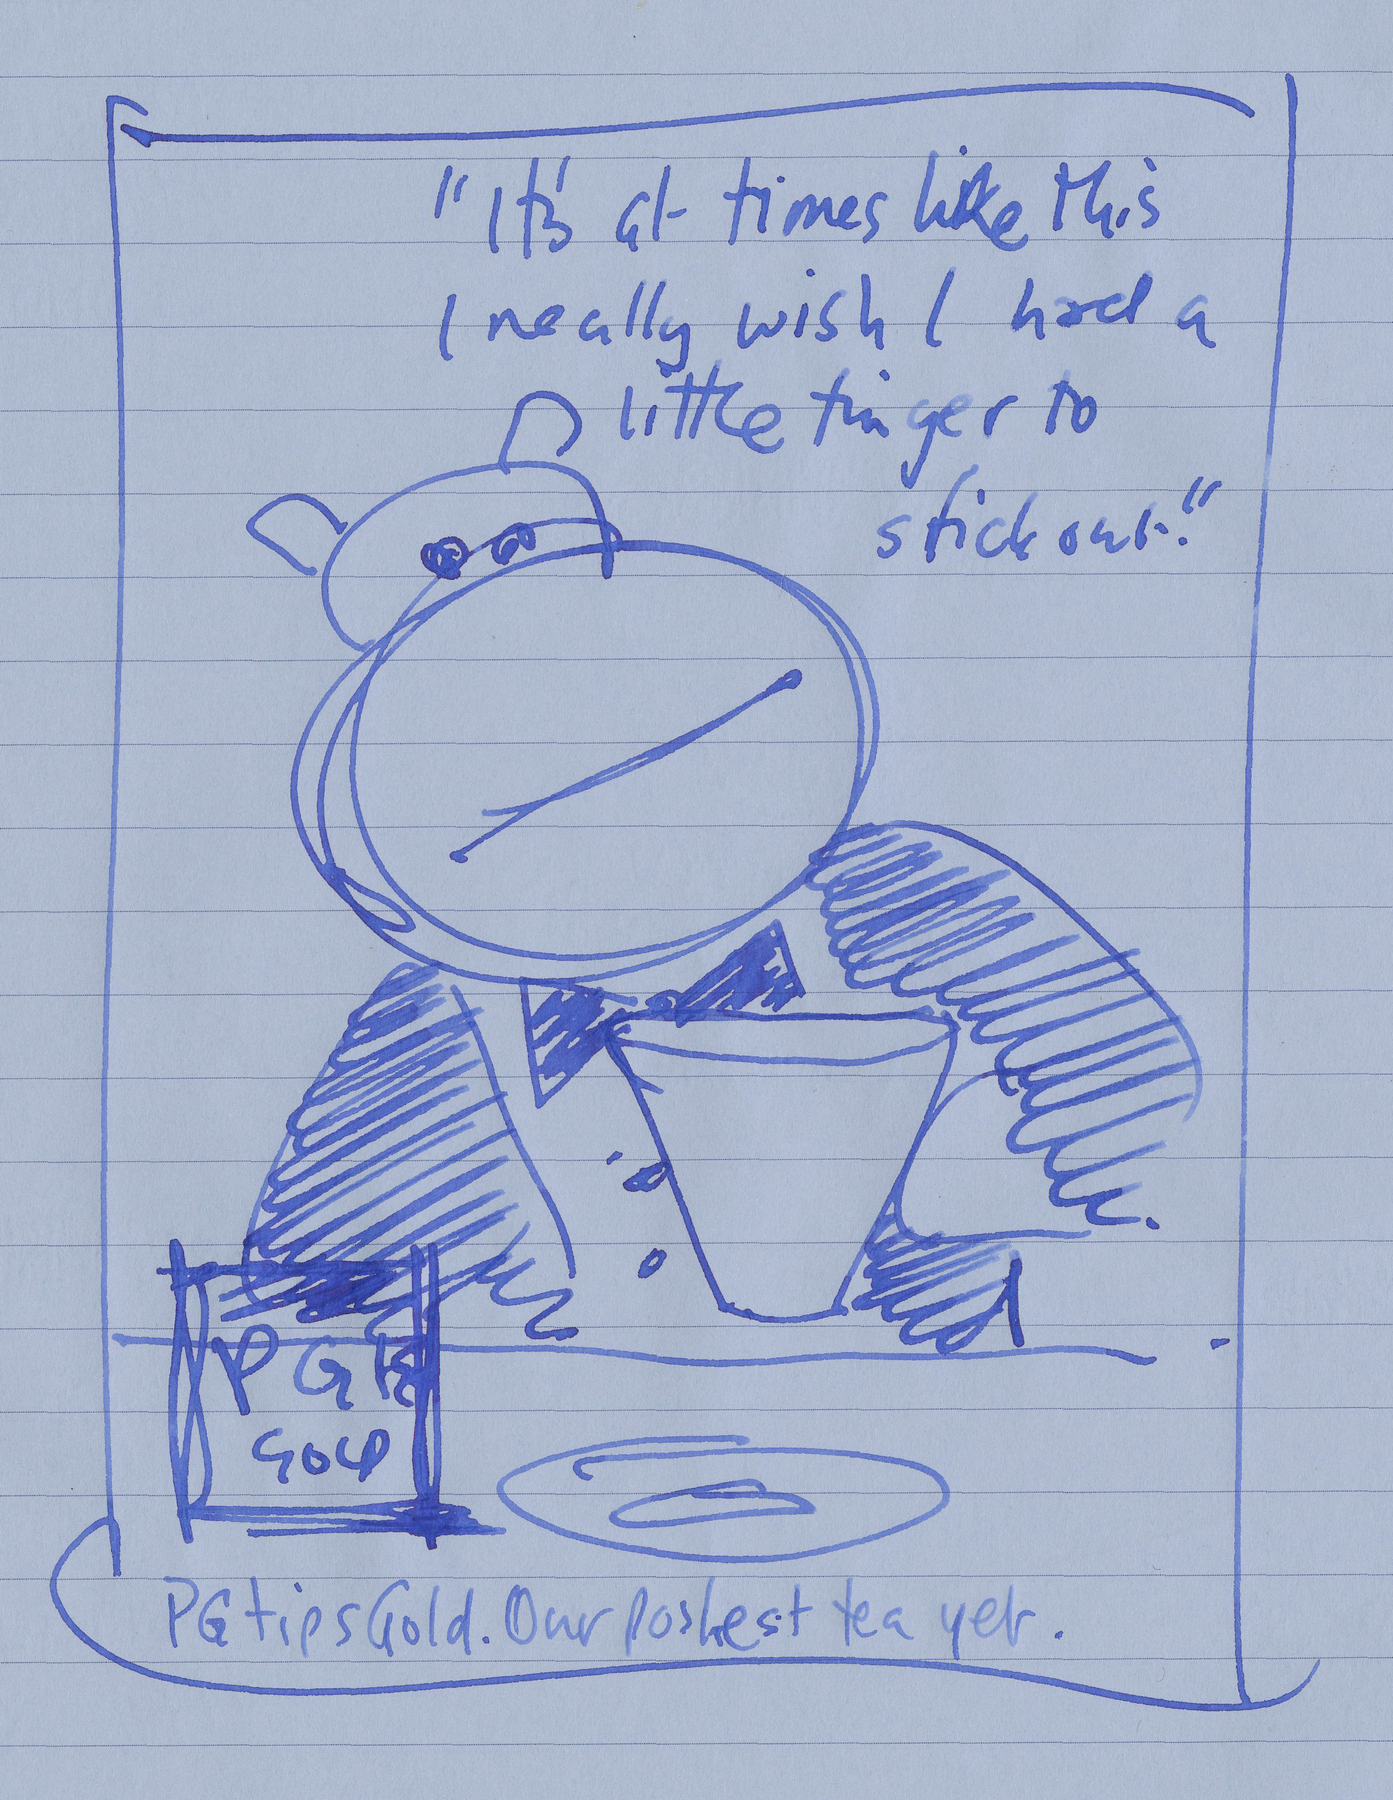 "It's at times like this
I really wish I had a
little finger to
stick out."
PG
GOLD
PG tips Gold. Our poshest tea yet.